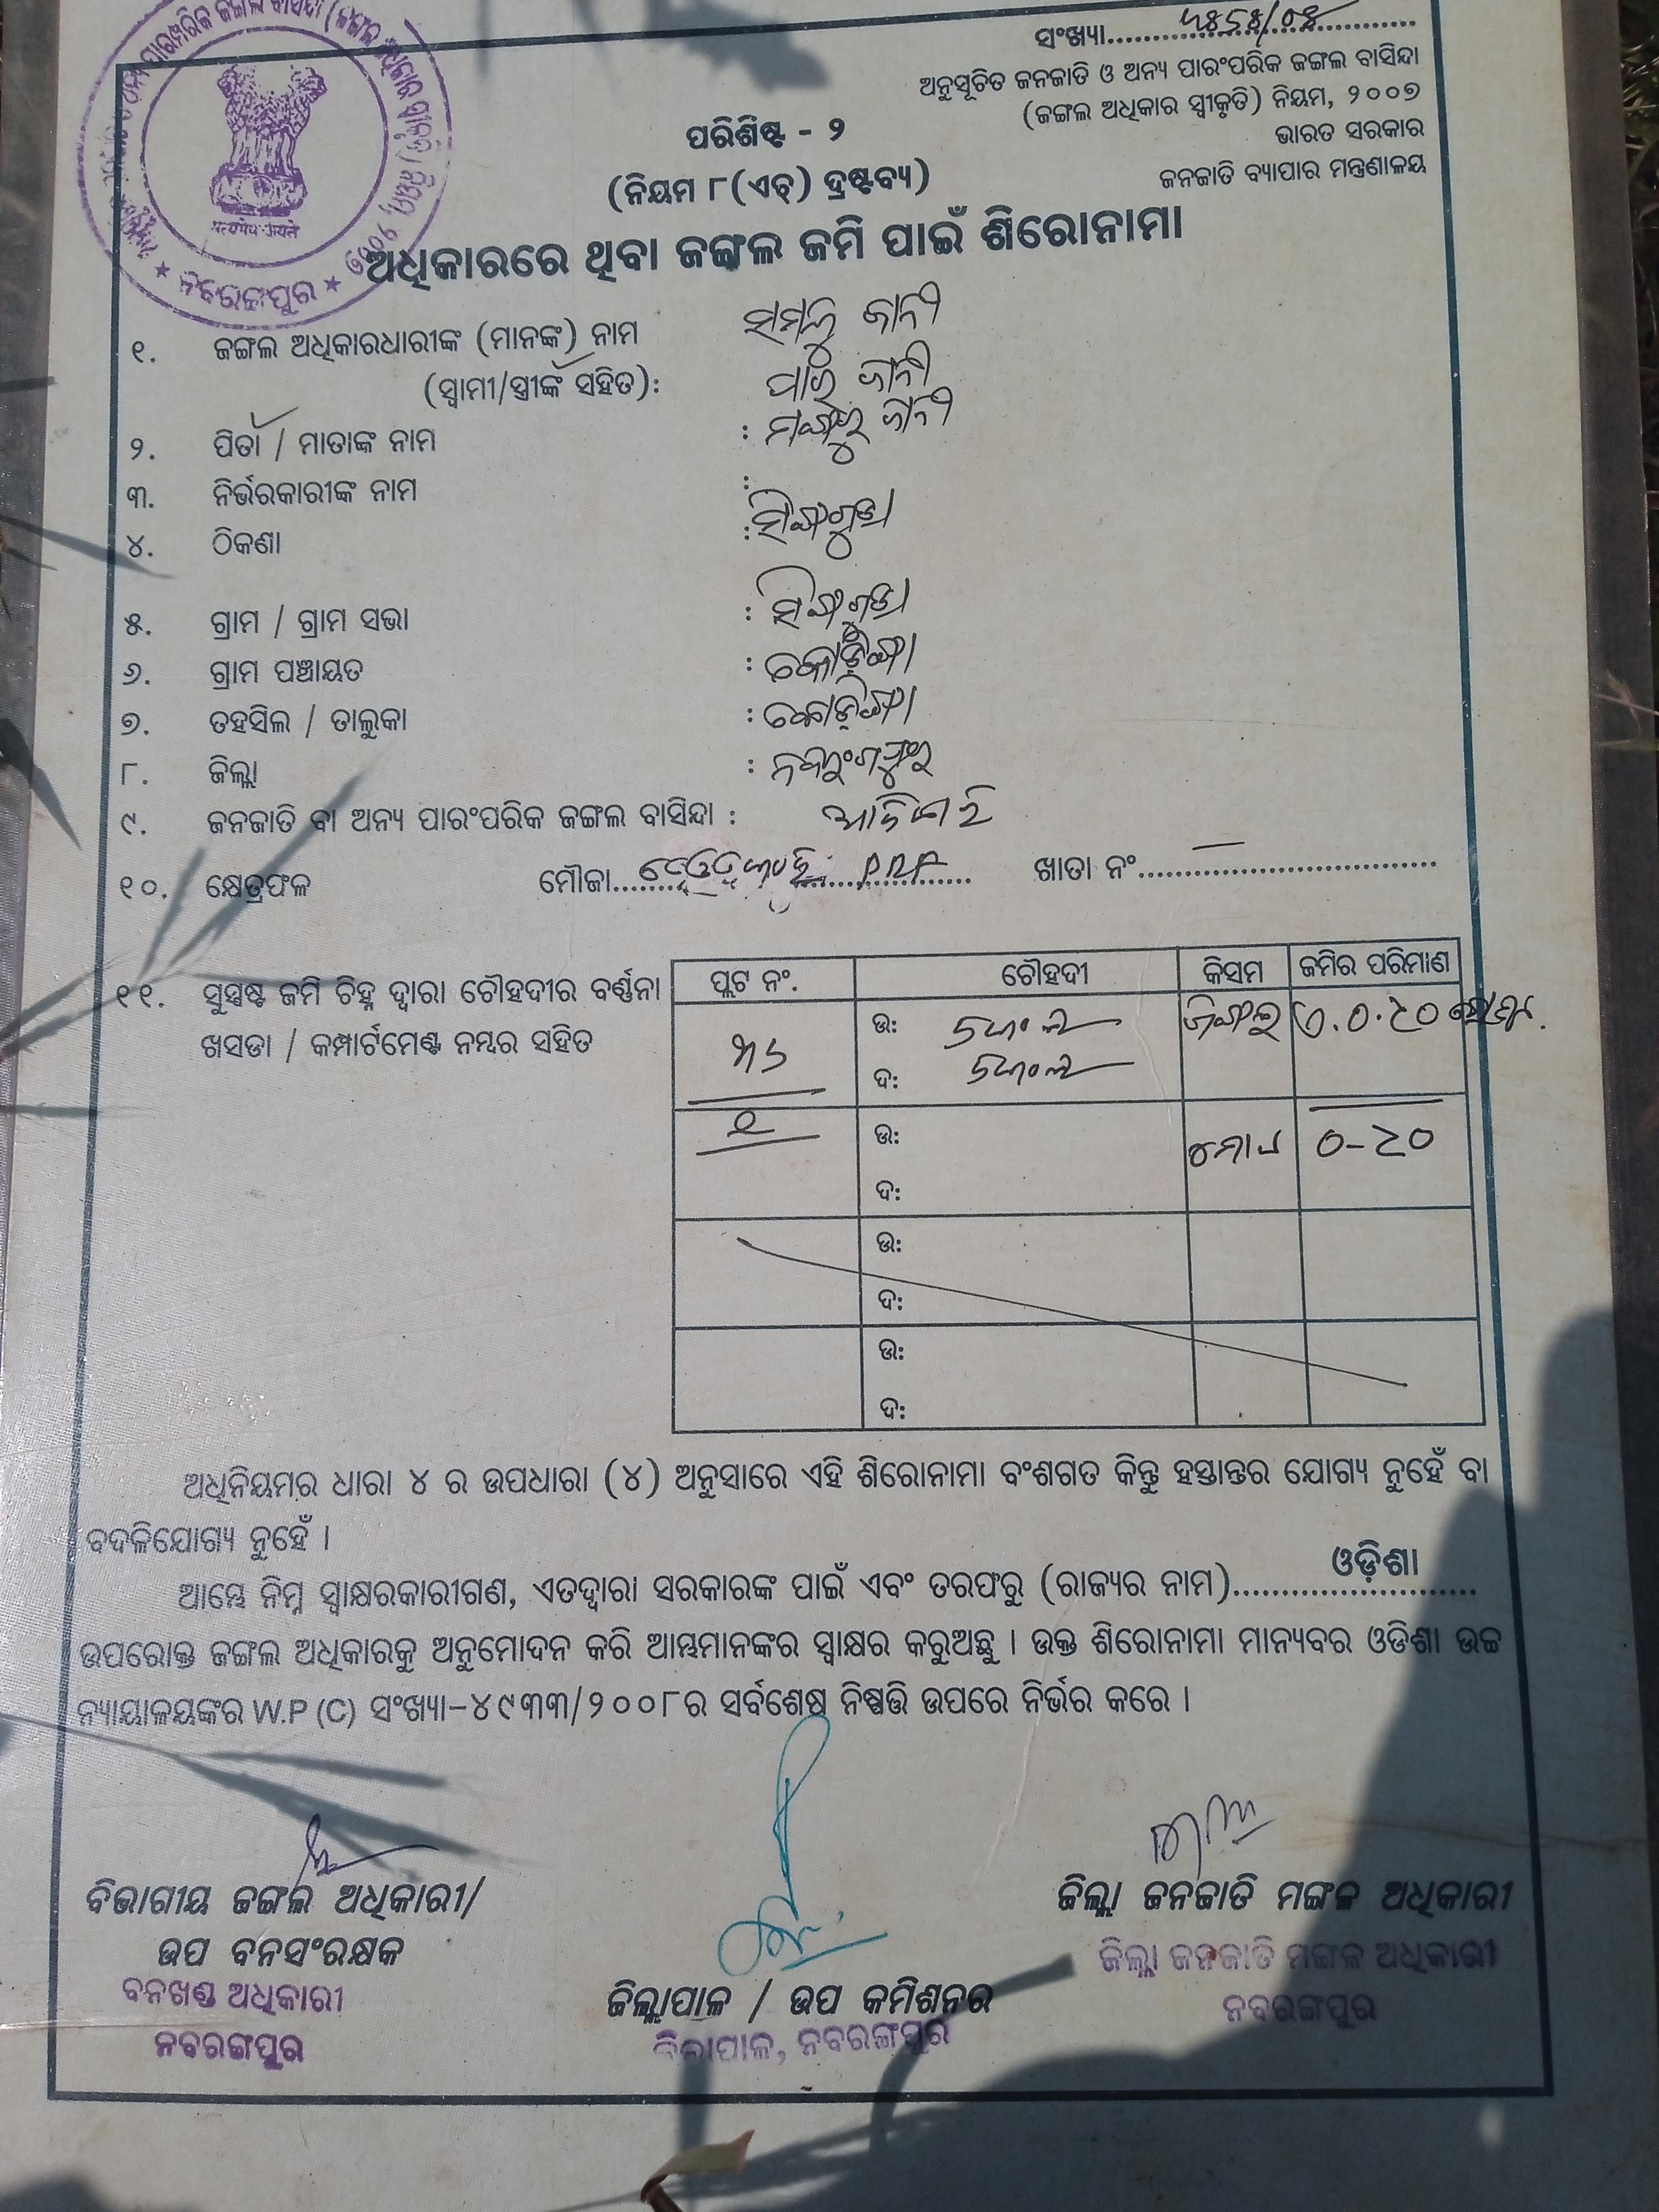 ସଂଖ୍ୟା
ଅନୁସୂଚିତ ଜନଜାତି ଓ ଅନ୍ୟ ପାରଂପରିକ ଜଙ୍ଗଲ ବାସିନ୍ଦା
(ଜଙ୍ଗଲ ଅଧିକାର ସ୍ୱୀକୃତି) ନିୟମ, ୨୦୦୭
ଭାରତ ସରକାର
ଜନଜାତି ବ୍ୟାପାର ମନ୍ତ୍ରଣାଳୟ
ପରିଶିଷ୍ଟ - ୨
(ନିୟମ ୮(ଏଚ୍) ଦ୍ରଷ୍ଟବ୍ୟ)
ନବରଙ୍ଗପୁର
ଅଧିକାରରେ ଥିବା ଜଙ୍ଗଲ ଜମି ପାଇଁ ଶିରୋନାମା
୧. ଜଙ୍ଗଲ ଅଧିକାରଧାରୀଙ୍କ (ମାନଙ୍କ) ନାମ ସାମଲୁ ଜାନୀ
(ସ୍ୱାମୀ/ସ୍ତ୍ରୀଙ୍କ ସହିତ): ଜାନୀ
୨. ପିତା / ମାତାଙ୍କ ନାମ : ଜାନୀ
୩. ନିର୍ଭରକାରୀଙ୍କ ନାମ :
୪. ଠିକଣା : ସିଙ୍ଗାଗୁଡା
୫. ଗ୍ରାମ / ଗ୍ରାମ ସଭା : ସିଙ୍ଗାଗୁଡା
୬. ଗ୍ରାମ ପଞ୍ଚାୟତ : କୋଡ଼ିଙ୍ଗା
୭. ତହସିଲ / ତାଲୁକା : କୋଡ଼ିଙ୍ଗା
୮. ଜିଲ୍ଲା : ନବରଂଗପୁର
୯. ଜନଜାତି ବା ଅନ୍ୟ ପାରଂପରିକ ଜଙ୍ଗଲ ବାସିନ୍ଦା : ଆଦିବାସୀ
୧୦. କ୍ଷେତ୍ରଫଳ ମୌଜା PRF ଖାତା ନଂ
୧୧. ସୁସ୍ପଷ୍ଟ ଜମି ଚିହ୍ନ ଦ୍ୱାରା ଚୌହଦୀର ବର୍ଣ୍ଣନା
ଖସଡା / କମ୍ପାର୍ଟମେଣ୍ଟ ନମ୍ବର ସହିତ
ପ୍ଲଟ ନଂ. ଚୌହଦୀ କିସମ ଜମିର ପରିମାଣ
ଉ: ଜଙ୍ଗଲ ଏ.୦.୬୦
ଦ:
୧ ଉ: ମୋଟ ୦-୬୦
ଦ:
ଉ:
ଦ:
ଉ:
ଦ:
ଅଧିନିୟମର ଧାରା ୪ ର ଉପଧାରା (୪) ଅନୁସାରେ ଏହି ଶିରୋନାମା ବଂଶଗତ କିନ୍ତୁ ହସ୍ତାନ୍ତର ଯୋଗ୍ୟ ନୁହେଁ ବା
ବଦଳିଯୋଗ୍ୟ ନୁହେଁ ।
ଆମ୍ଭେ ନିମ୍ନ ସ୍ୱାକ୍ଷରକାରୀଗଣ, ଏତଦ୍ୱାରା ସରକାରଙ୍କ ପାଇଁ ଏବଂ ତରଫରୁ (ରାଜ୍ୟର ନାମ) ଓଡ଼ିଶା
ଉପରୋକ୍ତ ଜଙ୍ଗଲ ଅଧିକାରକୁ ଅନୁମୋଦନ କରି ଆମ୍ଭମାନଙ୍କର ସ୍ୱାକ୍ଷର କରୁଅଛୁ । ଉକ୍ତ ଶିରୋନାମା ମାନ୍ୟବର ଓଡିଶା ଉଚ୍ଚ
ନ୍ୟାୟାଳୟଙ୍କର W.P (C) ସଂଖ୍ୟା-୪୯୩୩/୨୦୦୮ର ସର୍ବଶେଷ ନିଷ୍ପତ୍ତି ଉପରେ ନିର୍ଭର କରେ ।
ବିଭାଗୀୟ ଜଙ୍ଗଲ ଅଧିକାରୀ/
ଉପ ବନସଂରକ୍ଷକ
ବନଖଣ୍ଡ ଅଧିକାରୀ
ନବରଙ୍ଗପୁର
ଜିଲ୍ଲାପାଳ / ଉପ କମିଶନର
ଜିଲ୍ଲାପାଳ, ନବରଙ୍ଗପୁର
ଜିଲ୍ଲା ଜନଜାତି ମଙ୍ଗଳ ଅଧିକାରୀ
ଜିଲ୍ଲା ଜନଜାତି ମଙ୍ଗଳ ଅଧିକାରୀ
ନବରଙ୍ଗପୁର